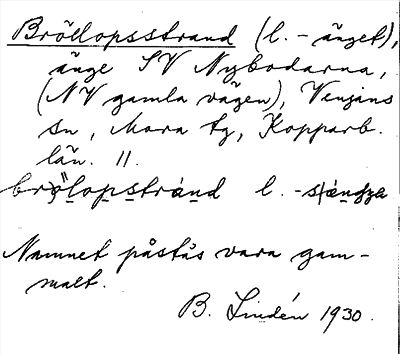 Bröllopsstrand (l. -änget),
änge SV Nybodarna,
(NV gamla vägen), Venjans
sn, Mora tg, Kopparb.
län. 11.
brö̀lopstránd l. -
Namnet påstås vara gam-
malt.
B. Lindén 1930.